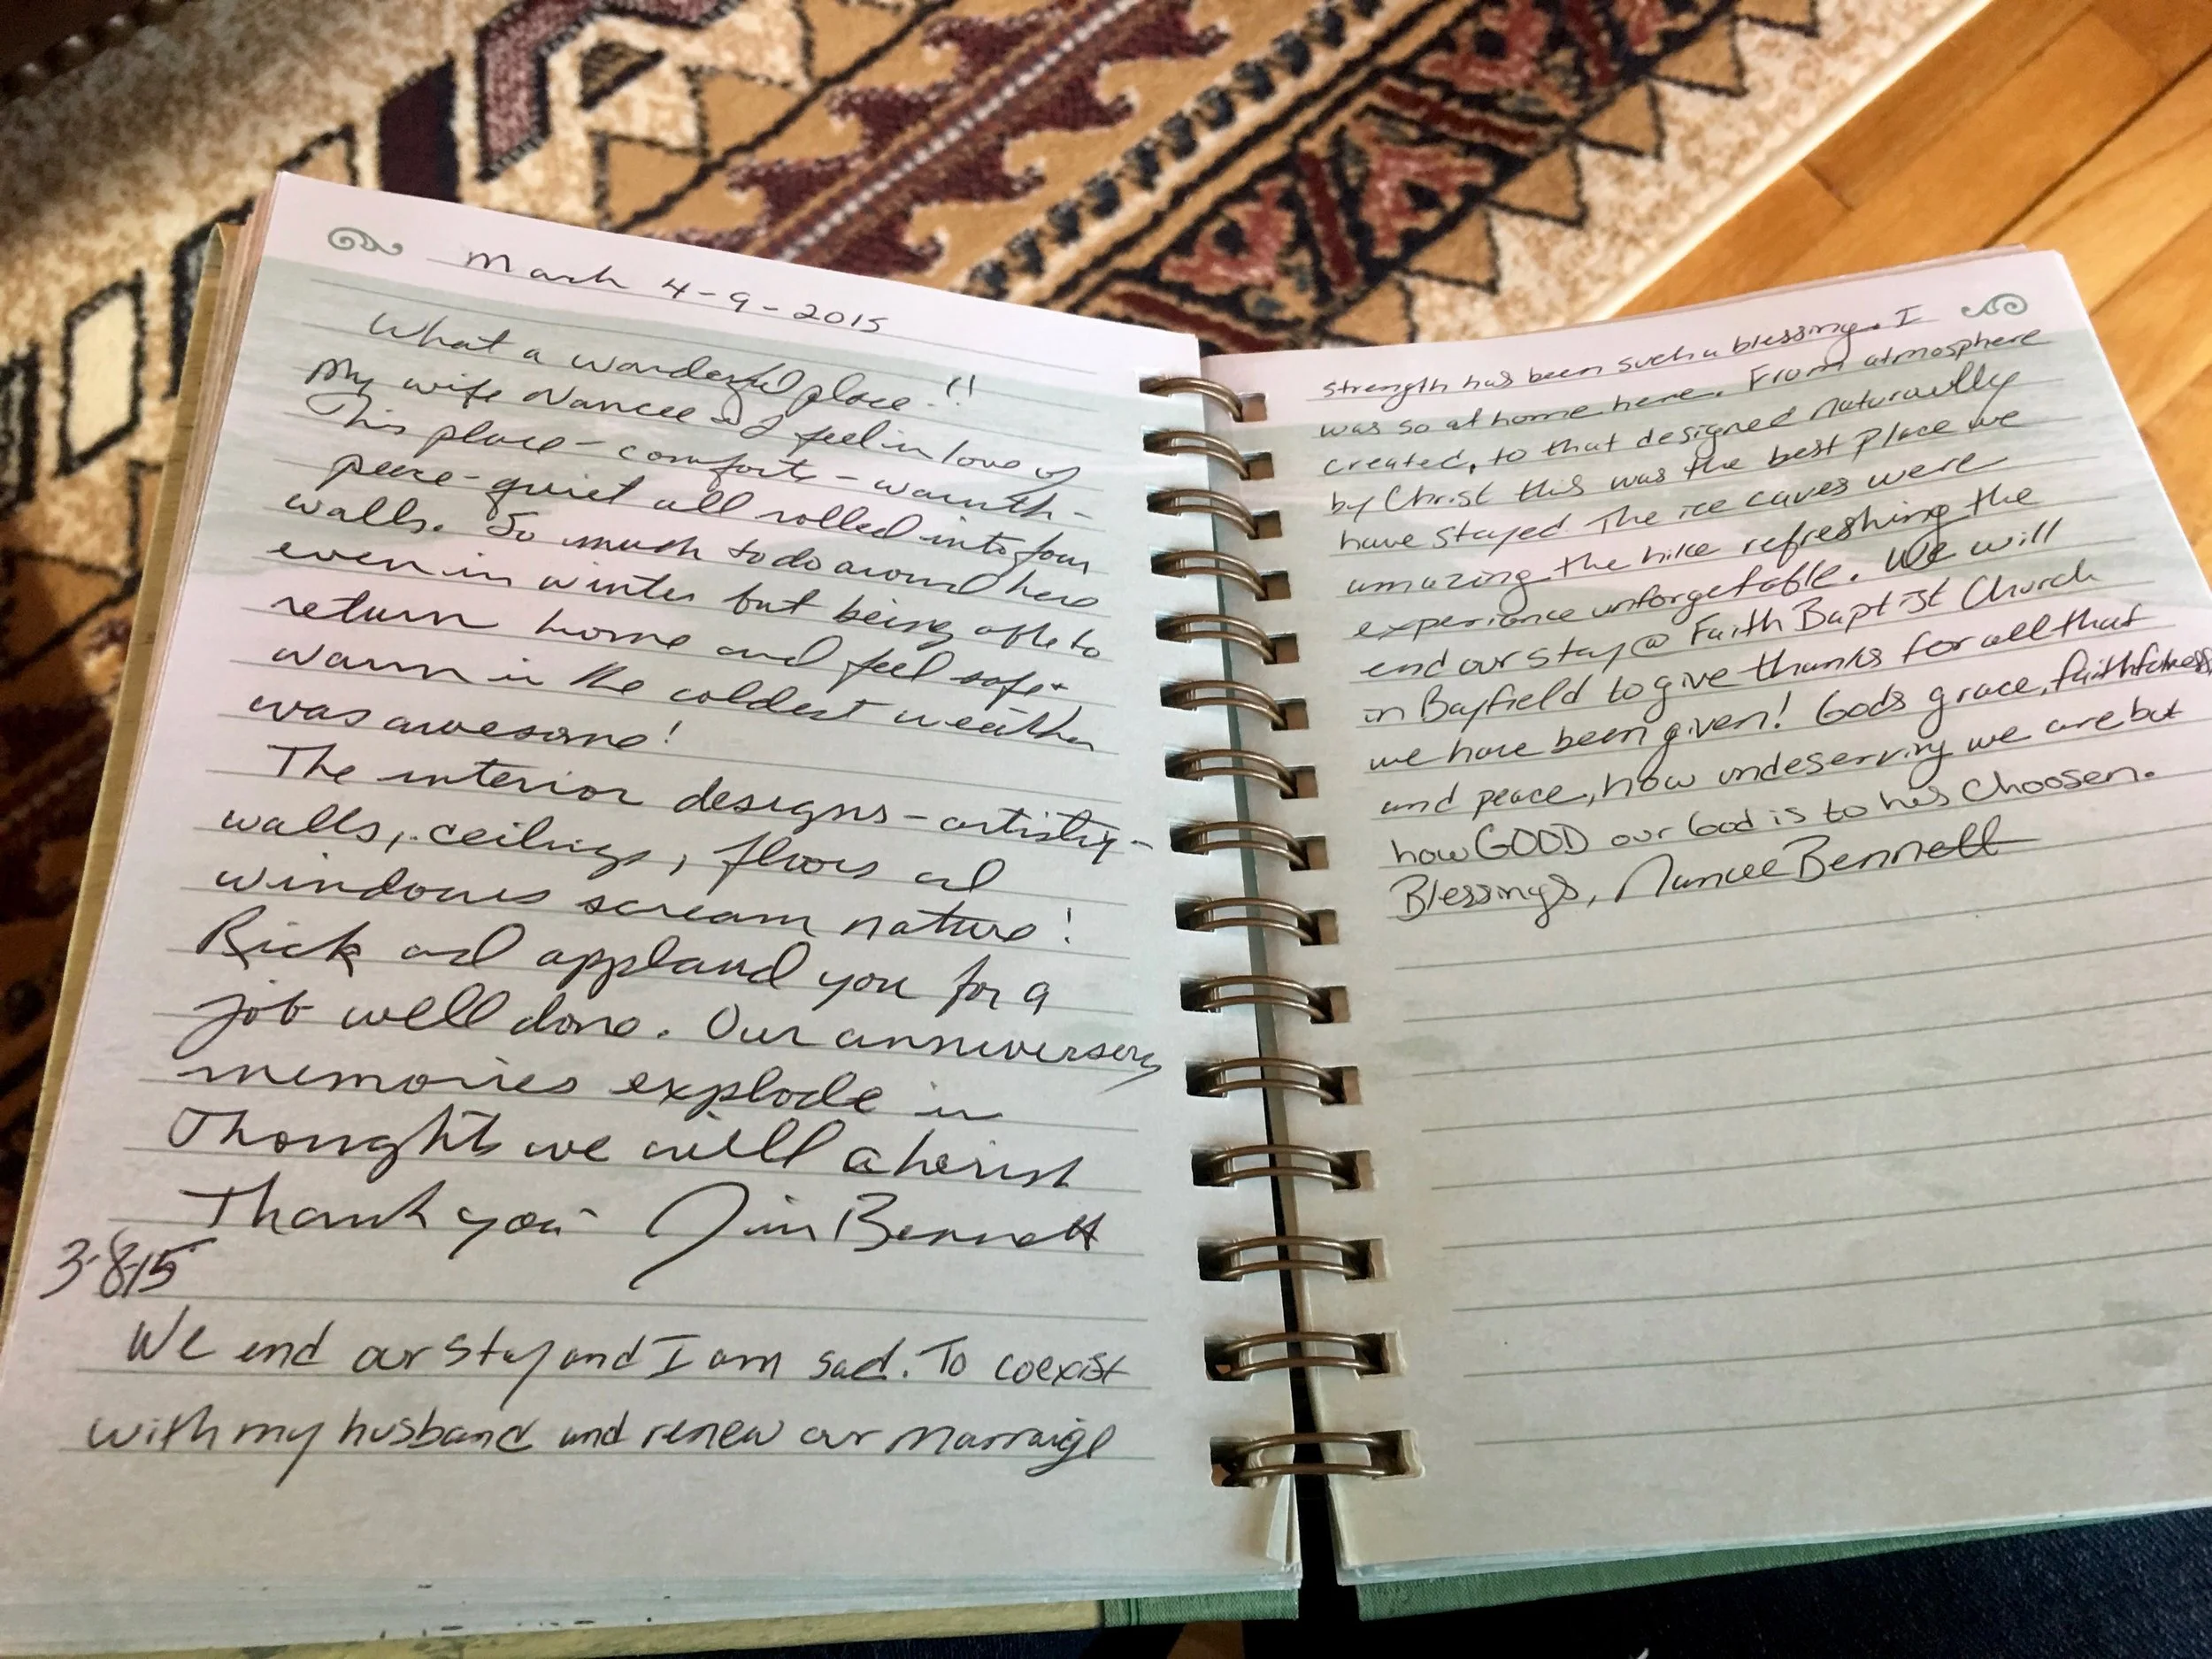 March 4-9-2015
What a wonderful place!!
My wife Nancee & I feel in love of
This place - comforts - warmth -
peace - quiet all rolled into four
walls. So much to do around here
even in winter but being able to
return home and feel safe +
warm in the coldest weather
was awesome!
The interior designs - artistry -
walls, ceilings, floors and
windows scream nature!
Rick and applaud you for a
job well done. Our anniversery
memories explode in
Thoughts we will cherish
Thank you - Jim Bennett
3-8-15
We end our stay and I am sad. To coexist
with my husband and renew our marraige
strength has been such a blessing. I
was so at home here. From atmosphere
created, to that designed naturally
by Christ this was the best place we
have stayed The ice caves were
amazing the hike refreshing the
experience unforgetable. We will
end our stay @ Faith Baptist Church
in Bayfield to give thanks for all that
we have been given! Gods grace, faithfulness,
and peace, how undeserving we are but
how GOOD our God is to his choosen.
Blessings, Nancee Bennett